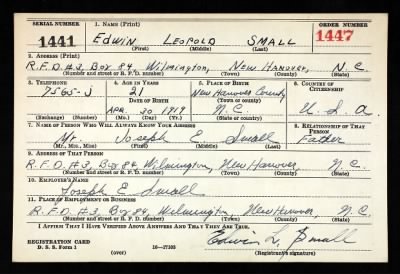 SERIAL NUMBER 1. NAME (Print) ORDER NUMBER
1441 EDWIN LEOPOLD SMALL 1447
(First) (Middle) (Last)
2. ADDRESS (Print)
R.F.D. #3, Box 84, Wilmington, New Hanover, N.C.
(Number and street or R. F. D. number) (Town) (County) (State)
3. TELEPHONE 4. AGE IN YEARS 5. PLACE OF BIRTH 6. COUNTRY OF CITIZENSHIP
7565-J 21 New Hanover County
DATE OF BIRTH (Town or county)
Apr. 30 1919 N.C. U.S.A
(Exchange) (Number) (Mo.) (Day) (Yr.) (State or country)
7. NAME OF PERSON WHO WILL ALWAYS KNOW YOUR ADDRESS 8. RELATIONSHIP OF THAT PERSON
Mr. Joseph E Small Father
(Mr., Mrs., Miss) (First) (Middle) (Last)
9. ADDRESS OF THAT PERSON
R.F.D. #3, Box 84, Wilmington, New Hanover, N.C.
(Number and street or R. F. D. number) (Town) (County) (State)
10. EMPLOYER'S NAME
Joseph E Small
11. PLACE OF EMPLOYMENT OR BUSINESS
R.F.D. #3, Box 84, Wilmington, New Hanover, N.C.
(Number and street or R. F. D. number) (Town) (County) (State)
I AFFIRM THAT I HAVE VERIFIED ABOVE ANSWERS AND THAT THEY ARE TRUE.
REGISTRATION CARD Edwin L. Small
D. S. S. Form 1 (over) 16—17105 (Registrant's signature)